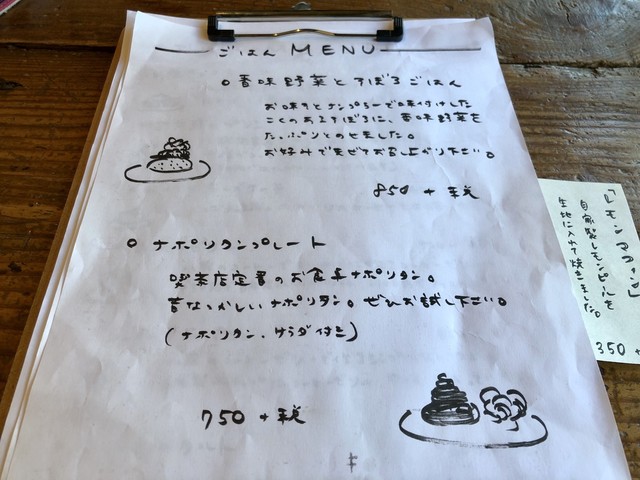 ごはん MENU
○ 香味野菜とそぼろごはん
お味噌とナンプラーで味付けした
こくのあるそぼろに、香味野菜を
たっぷりとのせました。
お好みで混ぜてお召し上がり下さい。
850 + 税
○ ナポリタンプレート
喫茶店定番のお食事ナポリタン。
昔なつかしいナポリタン。ぜひお試し下さい。
(ナポリタン、サラダ付き)
750 + 税
「レモンマフィン」
自家製レモンピールを
生地に入れて焼きました。
350 +